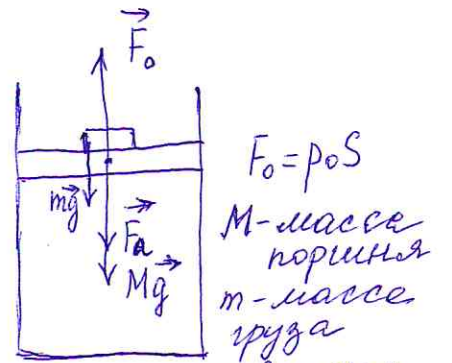 F₀
F₀ = p₀S
mg
Fₐ
Mg
M - масса
поршня
m - масса
груза